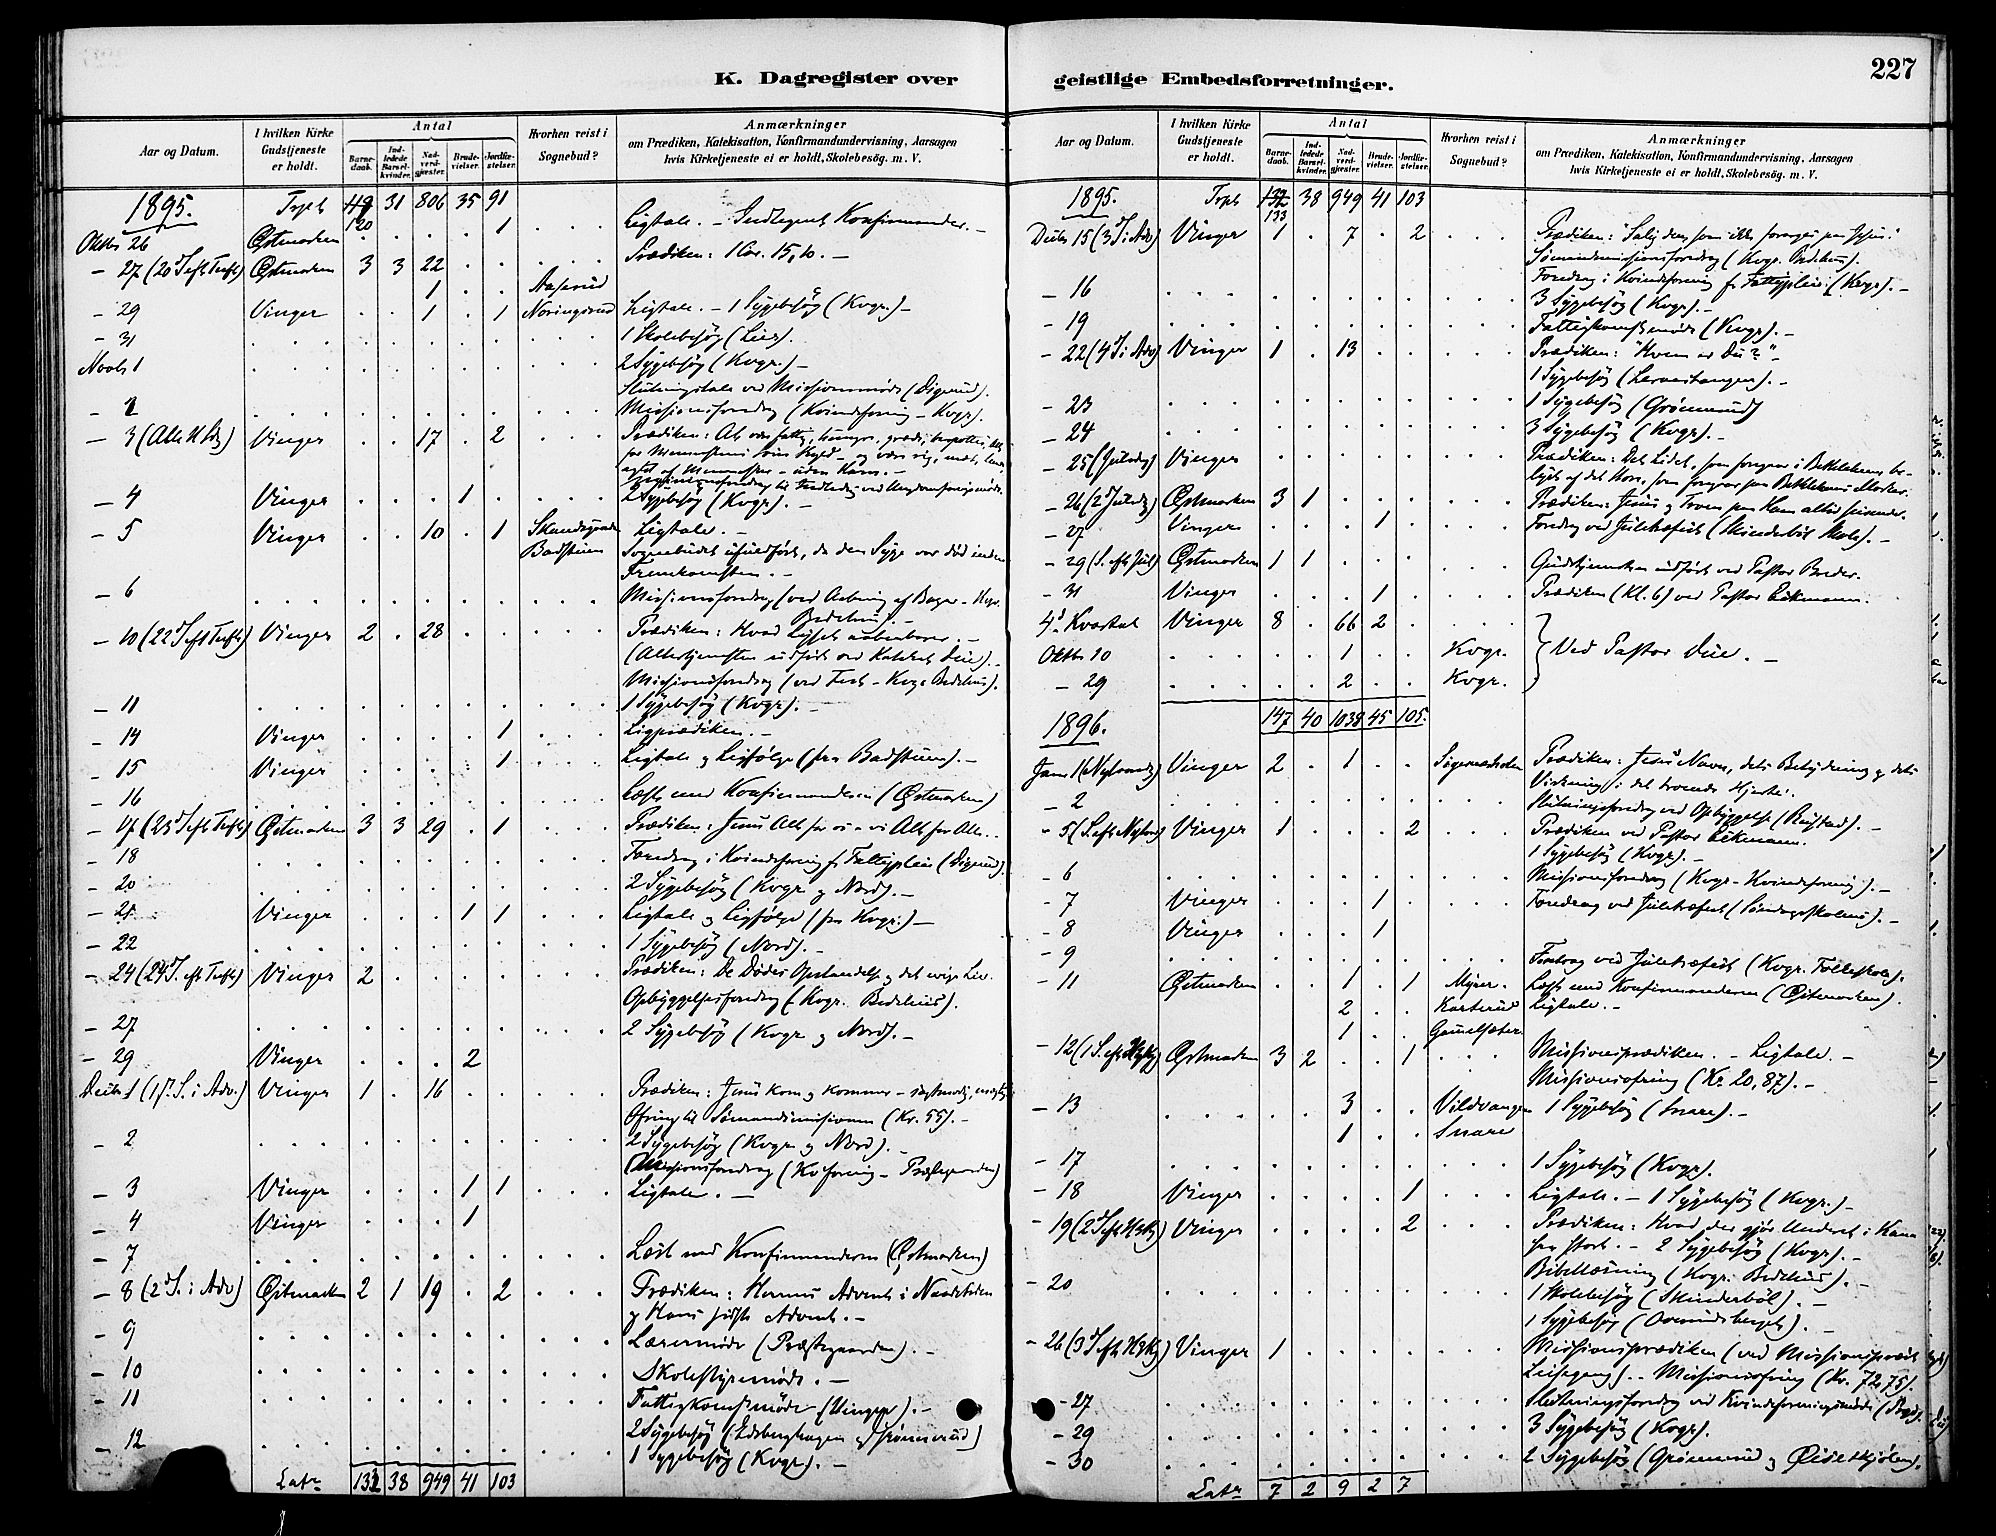 K. Dagregister over
geistlige Embedsforretninger.
227
Aar og Datum.
I hvilken Kirke Gudstjeneste er holdt.
Antal
Barnedaab.
Indledede Barselkvinder.
Nadverdgjæster.
Brudevielser.
Jordfæstelser.
Hvorhen reist i Sognebud?
Anmærkninger
om Prædiken, Katekisation, Konfirmandundervisning, Aarsagen
hvis Kirketjeneste ei er holdt, Skolebesøg. m. V.
1895. 31 806 35 91
120
Oktbr 26 Østmarken 1 Ligtale. – Konfirmander. –
– 27 Østmarken 3 3 22 Prædiken: 1 Cor. 15, 10. –
1 Aaserud
– 29 Vinger 1 1 Noringsrud Ligtale. – 1 Sygebesøg (Kvgr.) –
– 31 1 Skolebesøg (Lier).
Novbr 1 2 Sygebesøg (Kvgr.) –
Slutningstale ved Missionsmøde (Digerud).
– 2 Missionsforedrag (Kvindeforening – Kvgr).
– 3 Vinger 17 2 Prædiken:
– 4 Vinger 1 2 Sygebesøg (Kvgr). –
– 5 Vinger 10 1 Ligtale. –
Badstuen Sognebudet ufuldført, da den Syge var død inden
Fremkomsten. –
– 6 Missionsforedrag (ved Aabning af Bazar – Kvgr.
Bedehus). –
– 10 Vinger 2 28 Prædiken: Hvad Lyset aabenbarer. –
(Altertjenesten udført ved Kateket Due). –
Missionsforedrag (ved Fest – Kvgr Bedehus).
– 11 1 Sygebesøg (Kvgr). –
– 14 Vinger 1 Ligprædiken. –
– 15 Vinger 1 Ligtale og Ligfølge (fra Badstuen). –
– 16 Læst med Konfirmanderne (Østmarken)
– 17 Østmarken 3 3 29 1 Prædiken: Jesus Alt for os – vi Alt for Alle. –
– 18 Foredrag i Kvindeforening f. Fattigpleie (Digerud).
– 20 2 Sygebesøg (Kvgr og Nord). –
– 21 Vinger 1 1 Ligtale og Ligfølge (fra Kvgr.) –
– 22 1 Sygebesøg (Nord). –
– 24 Vinger 2 Prædiken: De Dødes Opstandelse og det evige Liv.
Opbyggelsesforedrag (Kvgr. Bedehus).
– 27 2 Sygebesøg (Kvgr og Nord). –
– 29 Vinger 2
Decbr 1 (1ste S. i Adv.) Vinger 1 16 Prædiken: Jesus kom og kommer –
Ofring til Sømandsmissionen (Kr. 55). –
– 2 2 Sygebesøg (Kvgr og Nord). –
Missionsforedrag (Kv.forening – Præstegaarden)
– 3 Vinger 1 1 Ligtale. –
– 4 Vinger 1
– 7 Læst med Konfirmanderne (Østmarken)
– 8 (2d S. i Adv) Østmarken 2 1 19 2 Prædiken: Herrens Advent i Naadestolen
og Hans sidste Advent. –
– 9 Lærermøde (Præstegaarden). –
– 10 Skolestyremøde. –
– 11 Fattigkomsmøde (Vinger). –
– 12 2 Sygebesøg
1 Sygebesøg (Kvgr). –
Latr 132 38 949 41 103
Aar og Datum.
I hvilken Kirke Gudstjeneste er holdt.
Antal
Barnedaab.
Indledede Barselkvinder.
Nadverdgjæster.
Brudevielser.
Jordfæstelser.
Hvorhen reist i Sognebud?
Anmærkninger
om Prædiken, Katekisation, Konfirmandundervisning, Aarsagen
hvis Kirketjeneste ei er holdt, Skolebesøg. m. V.
1895. 132 38 949 41 103
133
Decbr 15 (3d S. i Adv) Vinger 1 7 2 Prædiken: Salig den, som ikke forarges paa Jesus.
Sømandsmissionsforedrag (Kvgr. Bedehus).
– 16 Foredrag i Kvindeforening f. Fattigpleie (Kvgr). –
3 Sygebesøg (Kvgr). –
– 19 Fattigkomsmøde (Vinger). –
– 22 (4 S. i Adv) Vinger 1 13 Prædiken: "Hvem er Du?" –
1 Sygebesøg (Lervestangen). –
– 23 1 Sygebesøg (Grønnerud)
– 24 3 Sygebesøg (Kvgr). –
– 25 (Juledag) Vinger Prædiken: Det Lidet, som foregaar i Bethlehems
– 26 (2 Juledag) Østmarken 3 1 Prædiken: Jesus og Troen paa Ham
– 27 Vinger 1 Foredrag ved Juletræfest (Skinderbøl Skole). –
– 29 (S. eft Jul) Østmarken 1 1 Gudstjenesten udført ved Pastor
– 31 Vinger 1 Prædiken (Kl. 6) ved Pastor Eckmann.
4d. Kvartal Vinger 8 66 2
Oktbr 10 1 Kvgr. Ved Pastor Due. –
– 29 2 Kvgr.
147 40 1038 45 105.
1896.
Janr 1 (Nytaarsdg) Vinger 2 1 Prædiken: Jesus Navn, dets Betydning og dets
Virkning i det troende Hjerte.
– 2 Slutningsforedrag ved Opbyggelse (Rustad). –
– 5 (S. eft Nytaar) Vinger 1 2 Prædiken ved Pastor Eckmann.
1 Sygebesøg (Kvgr). –
– 6 Missionsforedrag (Kvgr – Kvindeforening). –
– 7 Vinger 1 Foredrag ved Juletræfest (Søndagsskolens). –
– 8 Vinger 1
– 9 Foredrag ved Juletræfest (Kvgr. Folkeskole).
– 11 Østmarken 1 1 Myrer. Læst med Konfirmanderne (Østmarken).
2 Karterud Ligtale. –
1 Gammelsæter
– 12 Østmarken 3 2 1 Missionsprædiken. – Ligtale. –
Missionsofring (Kr. 20,87). –
– 13 3 Vildvangen 1 Sygebesøg (Snare). –
1 Snare
– 17 1 Sygebesøg (Kvgr).
– 18 Vinger 1 Ligtale. – 1 Sygebesøg (Kvgr.) –
– 19 Vinger 2 Prædiken: Hvad der gjør Underet i Kana
saa stort. – 2 Sygebesøg (Kvgr). –
– 20 Bibellæsning (Kvgr. Bedehus). –
1 Skolebesøg (Skinderbøl). –
1 Sygebesøg
– 26 Vinger 1 Missionsprædiken (ved Missionspræst
). – Missionsofring (Kr. 72,75).
– 27 Slutningsforedrag ved Kvindeforeningsmøde
– 29 3 Sygebesøg (Kvgr).
– 30 2 Sygebesøg (Grønnerud og
Latr 7 2 9 2 7